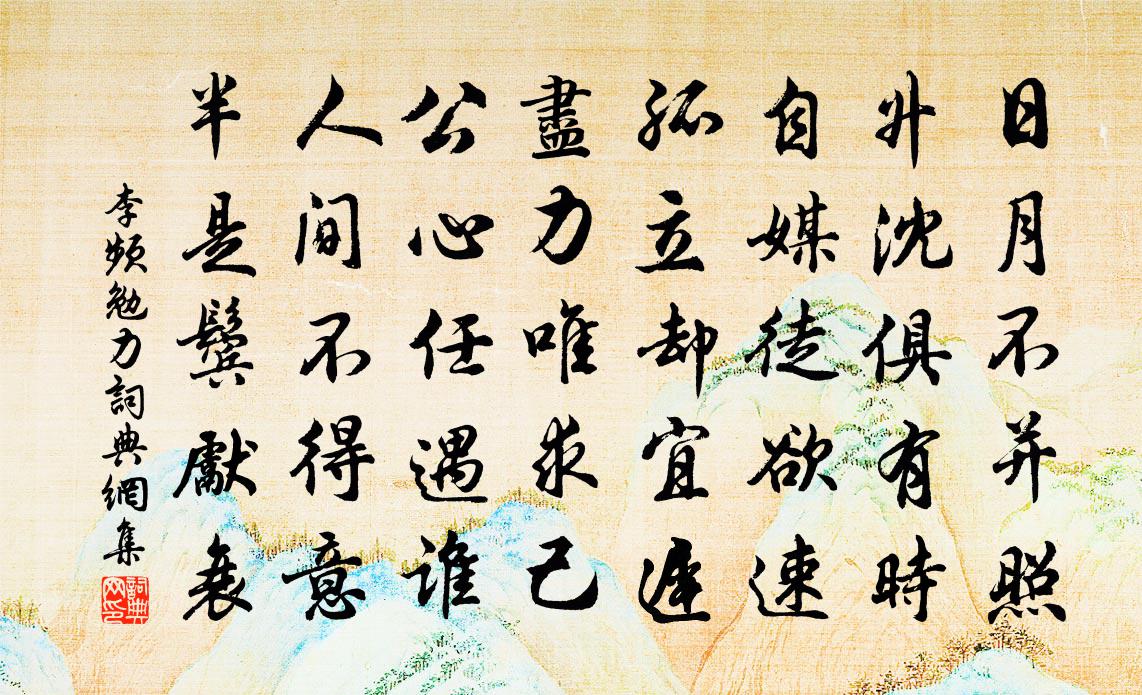 日月不并照
升沈俱有時
自媒徒欲速
孤立却宜遲
盡力唯求己
公心任遇誰
人間不得意
半是鬢獻衰
李頻勉力詞典網集
詞典網印